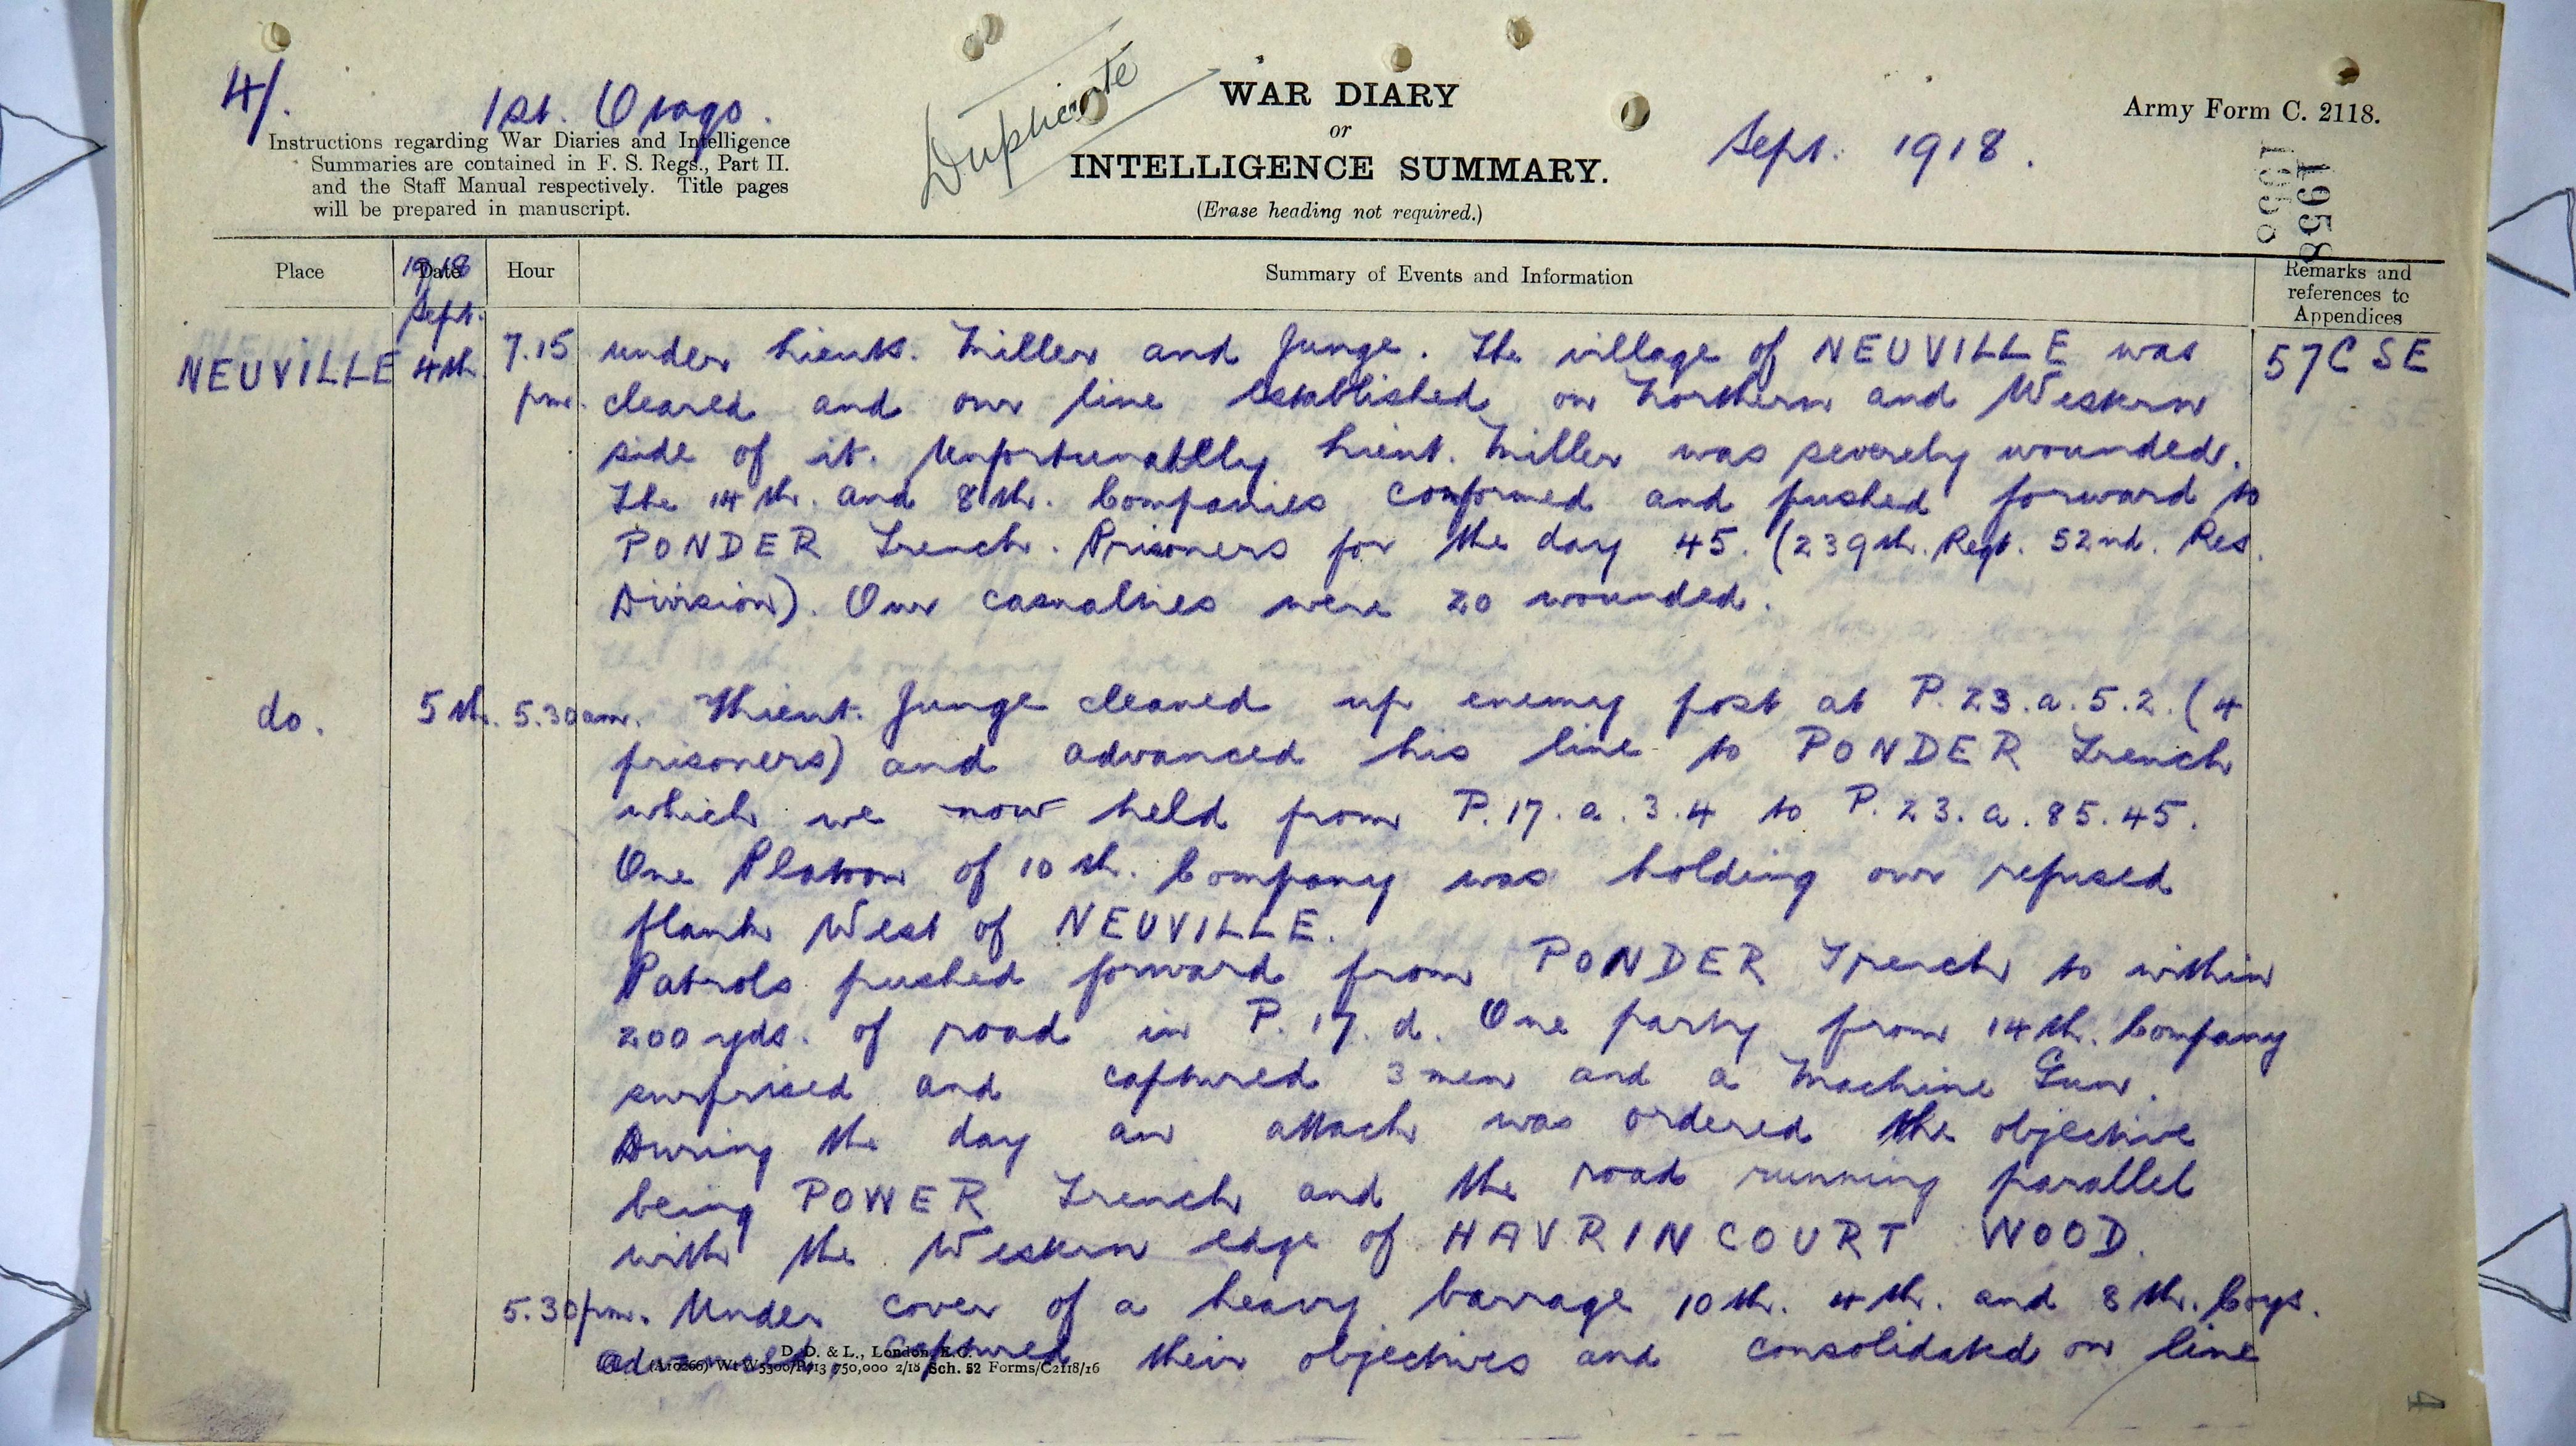 4/.
1st. Otago.
Duplicate
WAR DIARY
or
INTELLIGENCE SUMMARY.
(Erase heading not required.)
Sept. 1918.
Army Form C. 2118.
Instructions regarding War Diaries and Intelligence
Summaries are contained in F. S. Regs., Part II.
and the Staff Manual respectively. Title pages
will be prepared in manuscript.
1958
Place
Date
1918
Sept.
Hour
Summary of Events and Information
Remarks and
references to
Appendices
NEUVILLE 4th 7.15 under Lieuts. Miller and Junge. The village of NEUVILLE was 57C SE
pm. cleared and our line established on Northern and Western
side of it. Unfortunatelly Lieut. Miller was severely wounded.
The 14th. and 8th. Companies conformed and pushed forward to
PONDER Trench. Prisoners for the day 45. (239th. Regt. 52nd. Res.
Division). Our casualties were 20 wounded.
do. 5th. 5.30am. Lieut. Junge cleaned up enemy post at P.23.a.5.2. (4
prisoners) and advanced his line to PONDER Trench
which we now held from P.17.a.3.4 to P.23.a.85.45.
One Platoon of 10th. Company was holding our refused
flank West of NEUVILLE.
Patrols pushed forward from PONDER Trench to within
200 yds. of road in P.17.d. One party from 14th. Company
surprised and captured 3 men and a Machine Gun.
During the day an attack was ordered the objective
being POWER Trench and the road running parallel
with the Western edge of HAVRINCOURT WOOD.
5.30pm. Under cover of a heavy barrage 10th. 4th. and 8th. Coys.
advanced, captured their objectives and consolidated on line
D. D. & L., London, E.C.
(A10266) Wt W5300/P713 750,000 2/18 Sch. 52 Forms/C2118/16
4